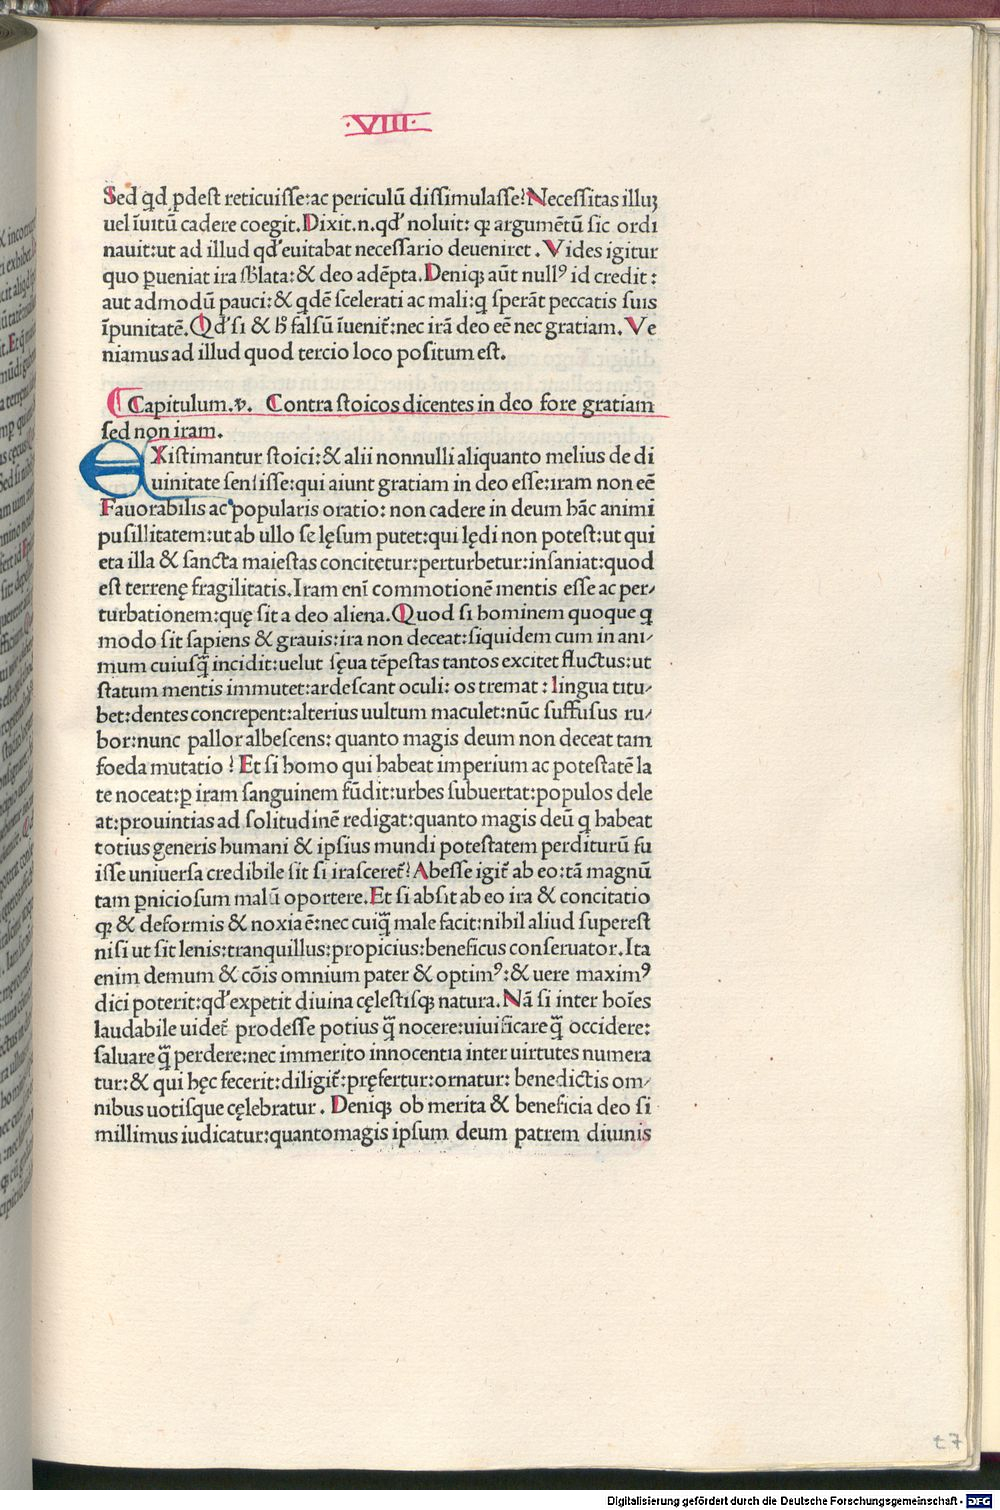 ·VIII·
Sed qd pdest reticuisse:ac periculū dissimulasse? Necessitas illuꝫ
uel īuitū cadere coegit. Dixit.n.qd' noluit: qꝛ argumētū sic ordi
nauit:ut ad illud qd' euitabat necessario deueniret. Vides igitur
quo ꝑueniat ira sƀlata: & deo adēpta. Deniqꝫ aūt nullꝰ id credit:
aut admodū pauci: & qdē scelerati ac mali:q sperāt peccatis suis
īpunitatē. Qd' si & hͦ falsū īuenit̄:nec irā deo eē nec gratiam. Ve
niamus ad illud quod tercio loco positum est.
Capitulum.v. Contra stoicos dicentes in deo fore gratiam
sed non iram.
EXistimantur stoici:& alii nonnulli aliquanto melius de di
uinitate sensisse:qui aiunt gratiam in deo esse:iram non eē
Fauorabilis ac popularis oratio: non cadere in deum hāc animi
pusillitatem:ut ab ullo se lęsum putet:qui lędi non potest:ut qui
eta illa & sancta maiestas concitetur:perturbetur:insaniat:quod
est terrenę fragilitatis. Iram enī commotionē mentis esse ac per/
turbationem:quę sit a deo aliena. Quod si hominem quoque q
modo sit sapiens & grauis:ira non deceat:siquidem cum in ani/
mum cuiusq̄ incidit:uelut sęua tēpestas tantos excitet fluctus:ut
statum mentis immutet:ardescant oculi: os tremat: lingua titu/
bet:dentes concrepent:alterius uultum maculet:nūc suffusus ru/
bor:nunc pallor albescens: quanto magis deum non deceat tam
foeda mutatio? Et si homo qui habeat imperium ac potestatē la
te noceat:ꝑ iram sanguinem fūdit:urbes subuertat:populos dele
at:prouintias ad solitudinē redigat:quanto magis deū q habeat
totius generis humani & ipsius mundi potestatem perditurū fu
isse uniuersa credibile sit si irasceret̄? Abesse igit̄ ab eo:tā magnū
tam ꝑniciosum malū oportere. Et si absit ab eo ira & concitatio
qꝛ & deformis & noxia ē:nec cuiq̄ male facit:nihil aliud superest
nisi ut sit lenis:tranquillus:propicius:beneficus conseruator. Ita
enim demum & cōis omnium pater & optimꝰ:& uere maximꝰ
dici poterit:qd' expetit diuina cęlestisqꝫ natura. Nā si inter hoīes
laudabile uidet̄ prodesse potius q̄ nocere:uiuificare q̄ occidere:
saluare q̄ perdere:nec immerito innocentia inter uirtutes numera
tur:& qui hęc fecerit:diligit̄:pręfertur:ornatur: benedictis om/
nibus uotisque cęlebratur. Deniqꝫ ob merita & beneficia deo si
millimus iudicatur:quantomagis ipsum deum patrem diuinis
t7
Digitalisierung gefördert durch die Deutsche Forschungsgemeinschaft - DFG